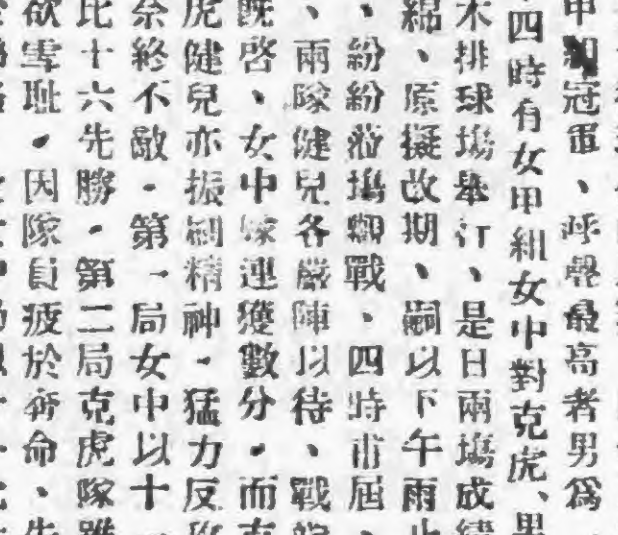 甲組冠軍、呼聲最高者男爲
四時有女甲組女中對克虎、男
木排球場舉行、是日兩場成績
綿、原擬改期、嗣以下午雨止
、紛紛蒞場觀戰、四時甫屆、
、兩隊健兒各嚴陣以待、戰
旣啓、女中隊連獲數分。而克
虎健兒亦振刷精神。猛力反攻
奈終不敵。第一局女中以十一
比十六先勝。第二局克虎隊雖
欲雪耻。因隊員疲於奔命、先